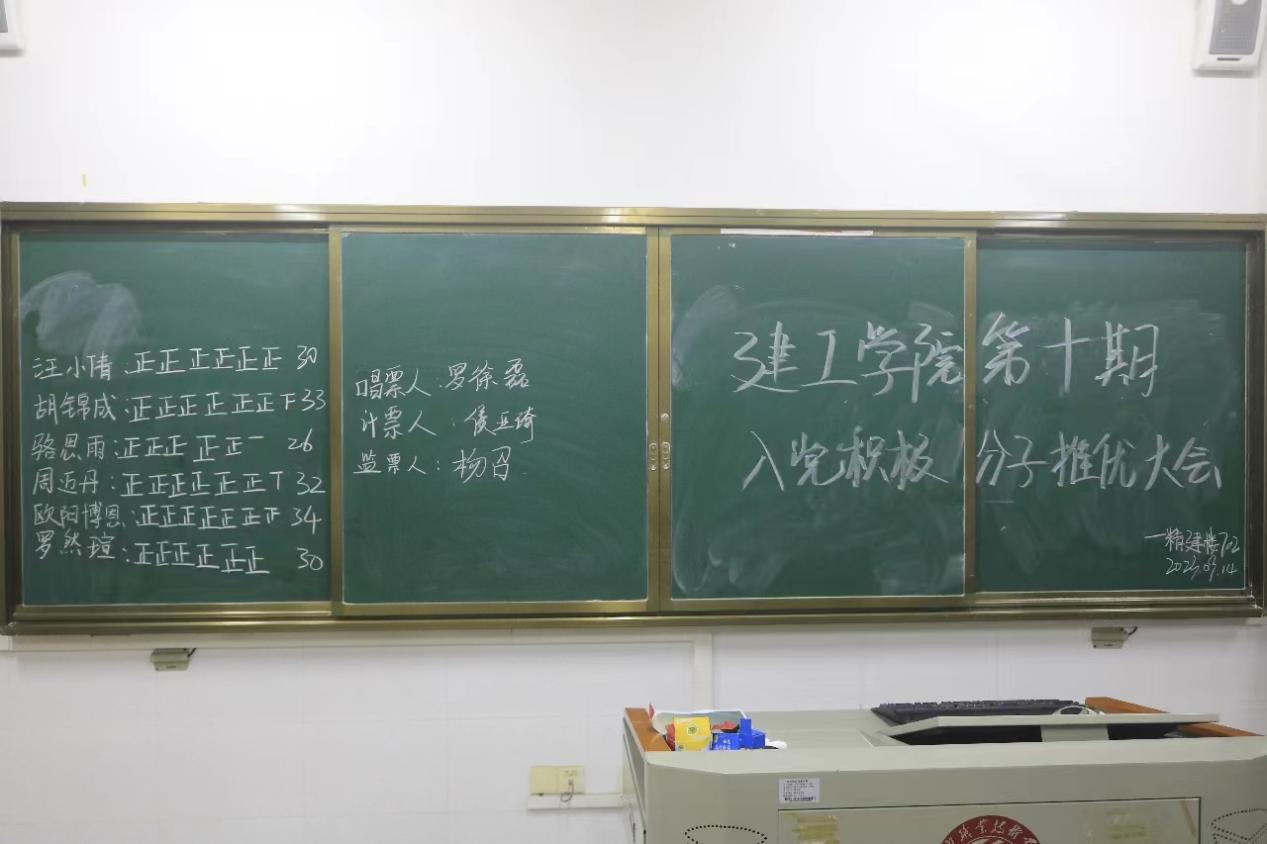 汪小倩:正正正正正正 30
胡锦成:正正正正正正下33
骆思雨:正正正正正一 26
周迈丹:正正正正正正丅 32
欧阳博恩:正正正正正正 34
罗然瑄:正正正正正正 30
唱票人:罗徐磊
计票人:侯亚琦
监票人:杨召
建工学院第十期
入党积极分子推优大会
一精建楼702
2023.09.14